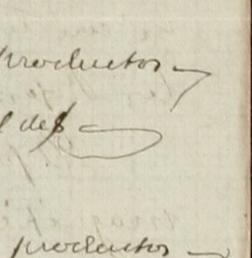 productos
l des
productos